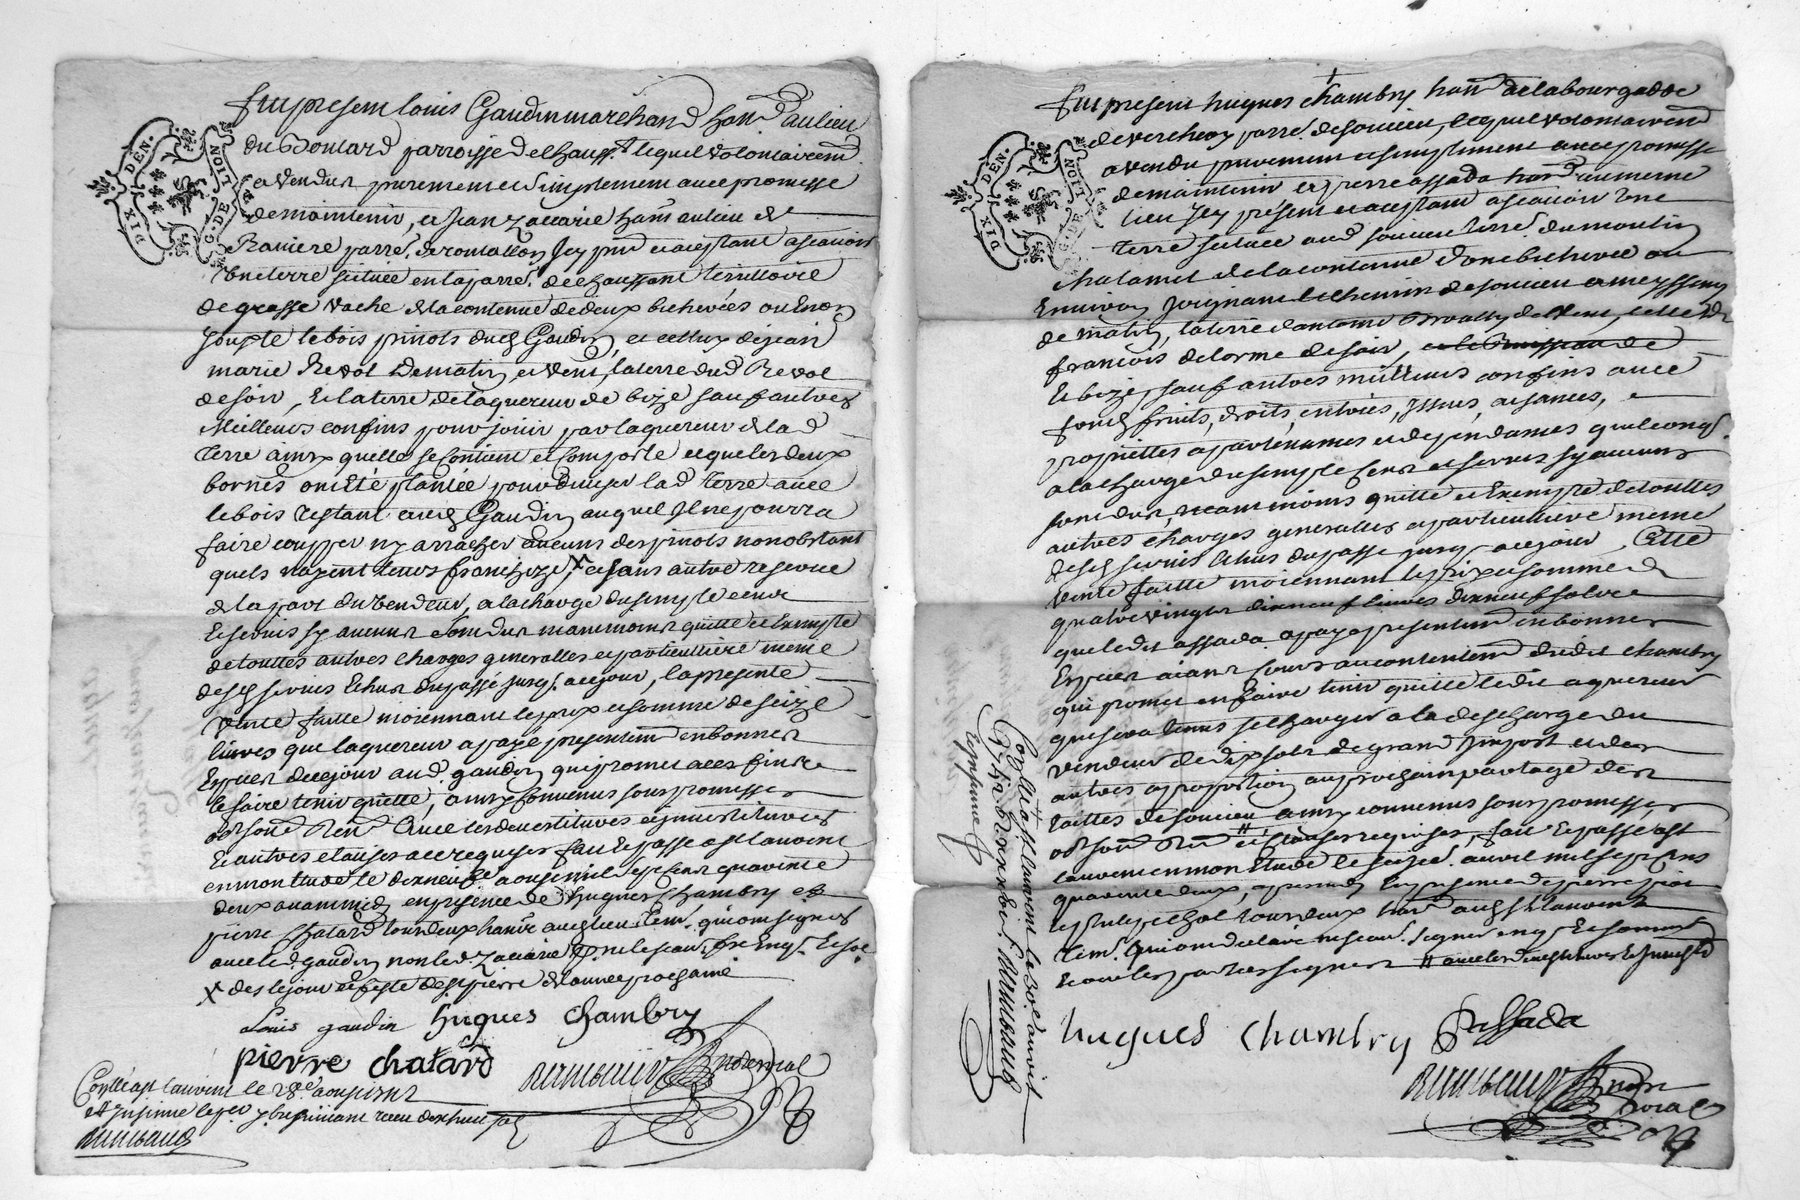 DIX DEN. G. DE LION
Fut present Louis Gaudin marchand han.d au lieu
du Boulard parroisse de Chauss.t lequel volontairem.t
a vendu purement et simplement avec promesse
de maintenir, a Jean Zaccarie han.t au lieu de
parr.e de rontallon Jcy pnt et aceptant ascavoir
Une terre scituée en la parr.e de chaussant territtoire
de grasse vache de la contenue de deux bicherées ou Environ
Jouxte le bois pinots dud Gaudin, et celluy de jean
marie Revol de matin et vent, la terre dud Revol
de soir, Et la terre de laquereur de bize sauf autres
Meilleurs confins pour jouir par laquereur de la d
terre ainsy quelle se contient et comporte et que les deux
bornes ont été plantée pour diviser lad terre avec
le bois restant aud Gaudin auquel Jl ne pourra
faire coupper ny arracher aucuns des pinots nonobstant
quels nayent leurs franchize, X et sans autre reserve
de la part du vendeur, a la charge du simple cens
Et servis sy aucun Sont dus neanmoins quitte et Exempte
de touttes autres charges generalles et particullière meme
desd servis Echus du passé jusq. a ce jour, la presente
Vente faitte moiennant le prix et somme de seize
livres que laquereur a payé presentem.t en bonnes
Espèces de ce jour aud. gaudin qui promet a ces fins de
le faire tenir quitte, ainsy convenus sous promesses
obl. soum. Ren.on avec les devestitures et jnvestitures
Et autres clauses a ce requises fait Et passé a st laurent
en mon Etude le dixneuf.e aoust mil sept cent quarante
deux avant midy en présence de hugues Chambry et
pierre Chatard tous deux han.s aud lieu tem. qui ont signés
avec led. gaudin non led. Zaccarie p. ne le scav.r fre Enq. Et so.e
X des le jour et feste de st pierre de lannee prochaine
Louis gaudin hugues Chambry
pierre chatard
notaire royal
Conllé a st laurent le 28.e aoust 1742
Fut present hugues chambry han.t de la bourgade
de verchery parr.e de soucieu, lequel volontairem.t
a vendu purement et simplement avec promesse
de maintenir a pierre assada han.t au meme
lieu Jcy présent et aceptant ascavoir Une
terre scituée aud soucieu terr.e du moulin
chalamel de la contenue dune bicherée ou
Environ joignant le chemin de soucieu a messimy
de matin, la terre dantoine de vent, celle de
françois delorme de soir,
Et bize, sauf autres meilleurs confins avec
fonds fruits, droits, entrées, Jssues, aisances,
propriettes apartenances et dependances quelconq.
a la charge du simple cens et servis sy aucuns
sont dus, neanmoins quitte et Exempte de touttes
autres charges generalles et particullière meme
desd servis Echus du passé jusq. a ce jour Cette
vente faitte moiennant le prix et somme de
quatre vingt dixneuf livres dixneuf sols
que ledit assada a payé presentem.t en bonnes
Espèces aiant cours au contentem.t dudit chambry
qui promet en faire tenir quitte ledit aquereur
que sera tenus se charger a la descharge du
vendeur de dix sols de grand Jmpost et des
autres a proportion au prochain partage des
tailles de soucieu ainsy convenus sous promesses,
obl. soum. Ren.on # et clauses requises, fait Et passé a st
laurent en mon Etude le seize.e avril mil sept cent
quarante deux, apres midy En presence de pierre
tous deux han.s aud st laurent
tem. qui ont declaré ne scav.r signer enq. Et sommés
Et ont les parties signés # avec les devestitures et Jnvestit.
hugues chambry P assada
notaire royal
Conllé a st laurent le 30.e avril